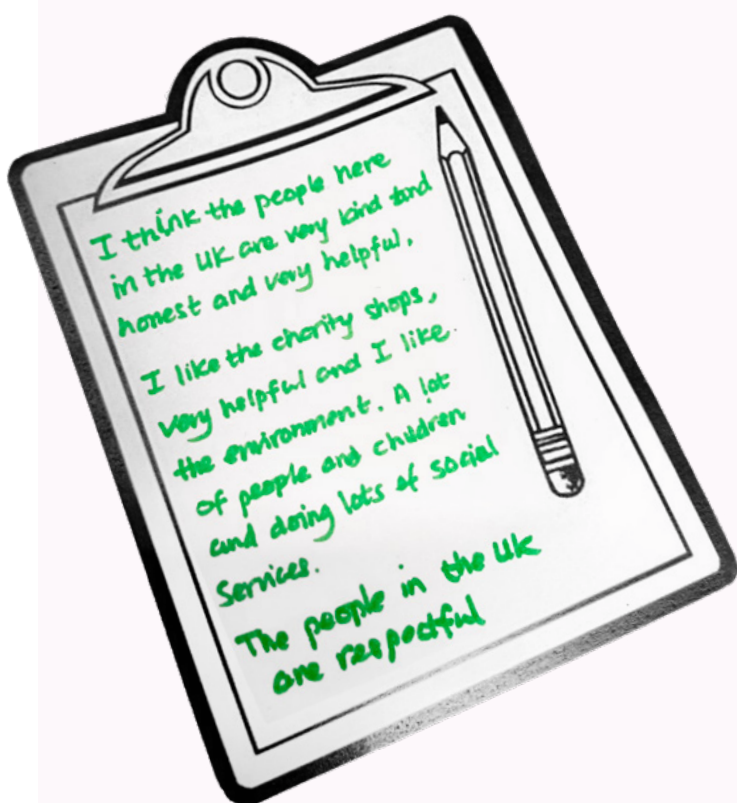 I think the people here
in the UK are very kind and
honest and very helpful.
I like the charity shops,
very helpful and I like
the environment. A lot
of people and children
and doing lots of social
services.
The people in the UK
are respectful